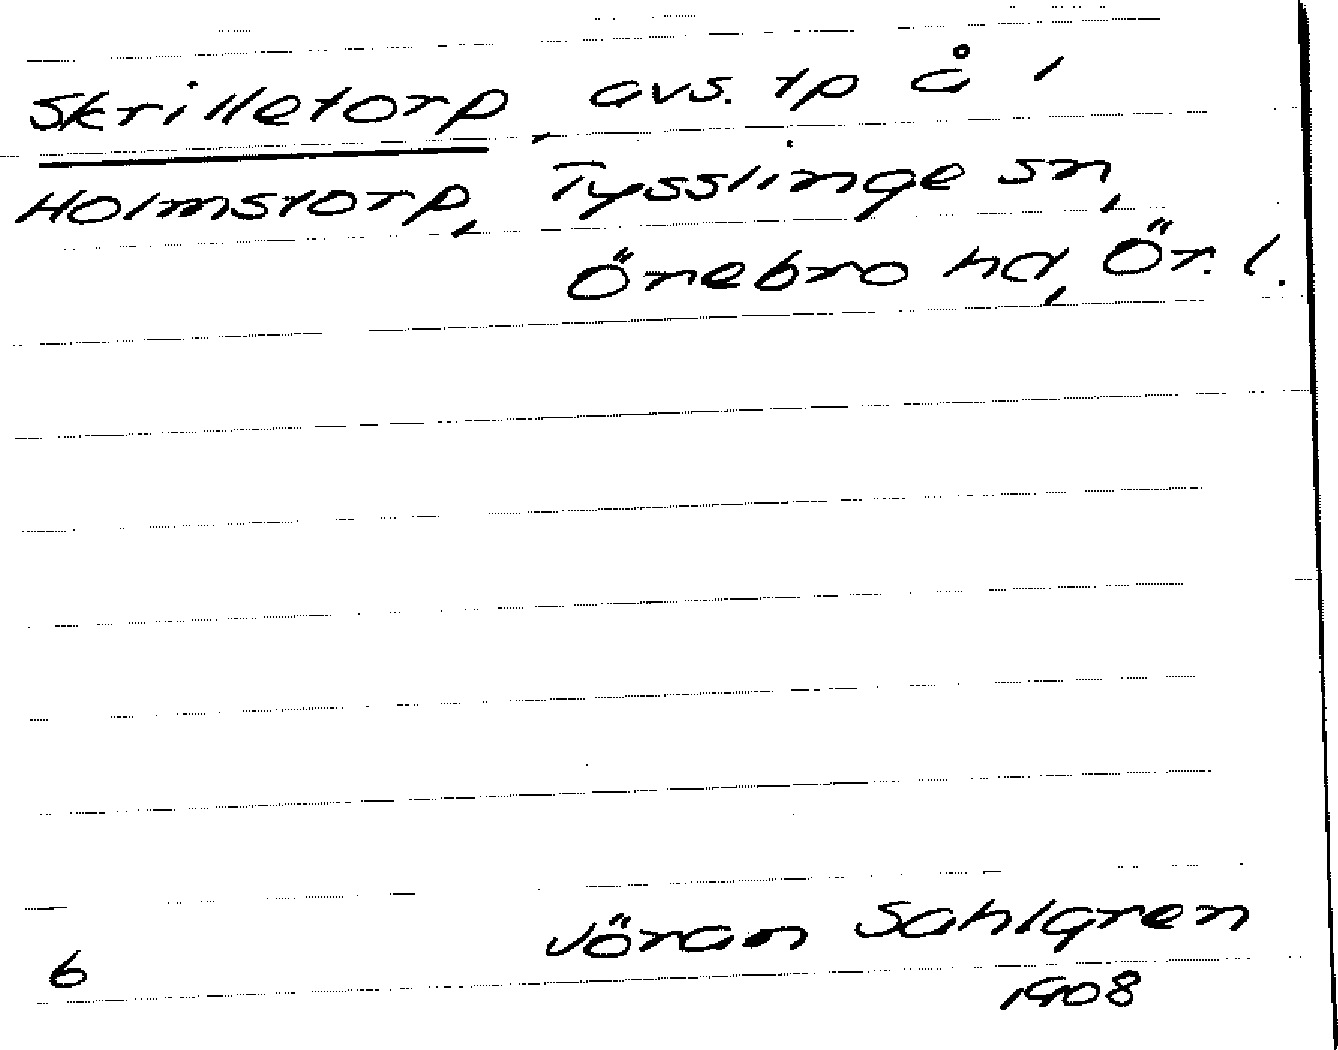 Skrilletorp, avs. tp å 1
Holmstorp, Tysslinge sn,
Örebro hd, Ör. l.
Jöran Sahlgren
6
1908